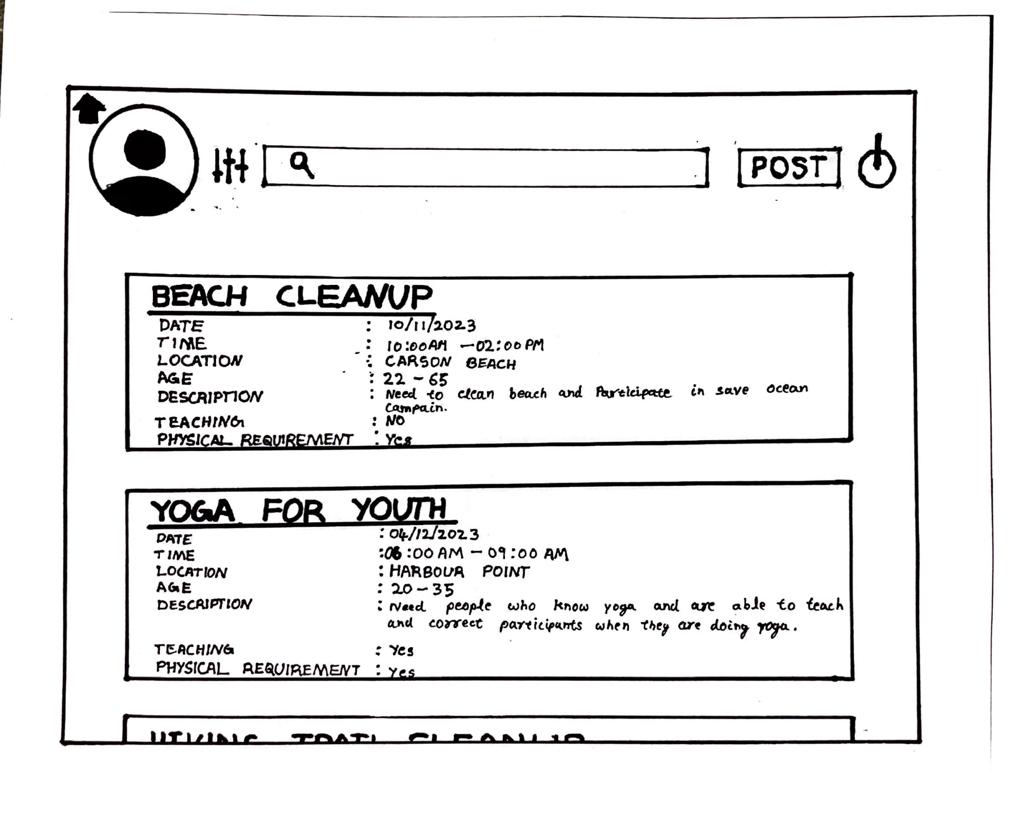 POST
BEACH CLEANUP
DATE : 10/11/2023
TIME : 10:00AM - 02:00 PM
LOCATION : CARSON BEACH
AGE : 22 - 65
DESCRIPTION : Need to clean beach and Participate in save ocean
campain.
TEACHING : NO
PHYSICAL REQUIREMENT : Yes
YOGA FOR YOUTH
DATE : 04/12/2023
TIME : 06:00 AM - 09:00 AM
LOCATION : HARBOUR POINT
AGE : 20-35
DESCRIPTION : Need people who know yoga and are able to teach
and correct participants when they are doing yoga.
TEACHING : Yes
PHYSICAL REQUIREMENT : Yes
HIKING TRAIL CLEANUP